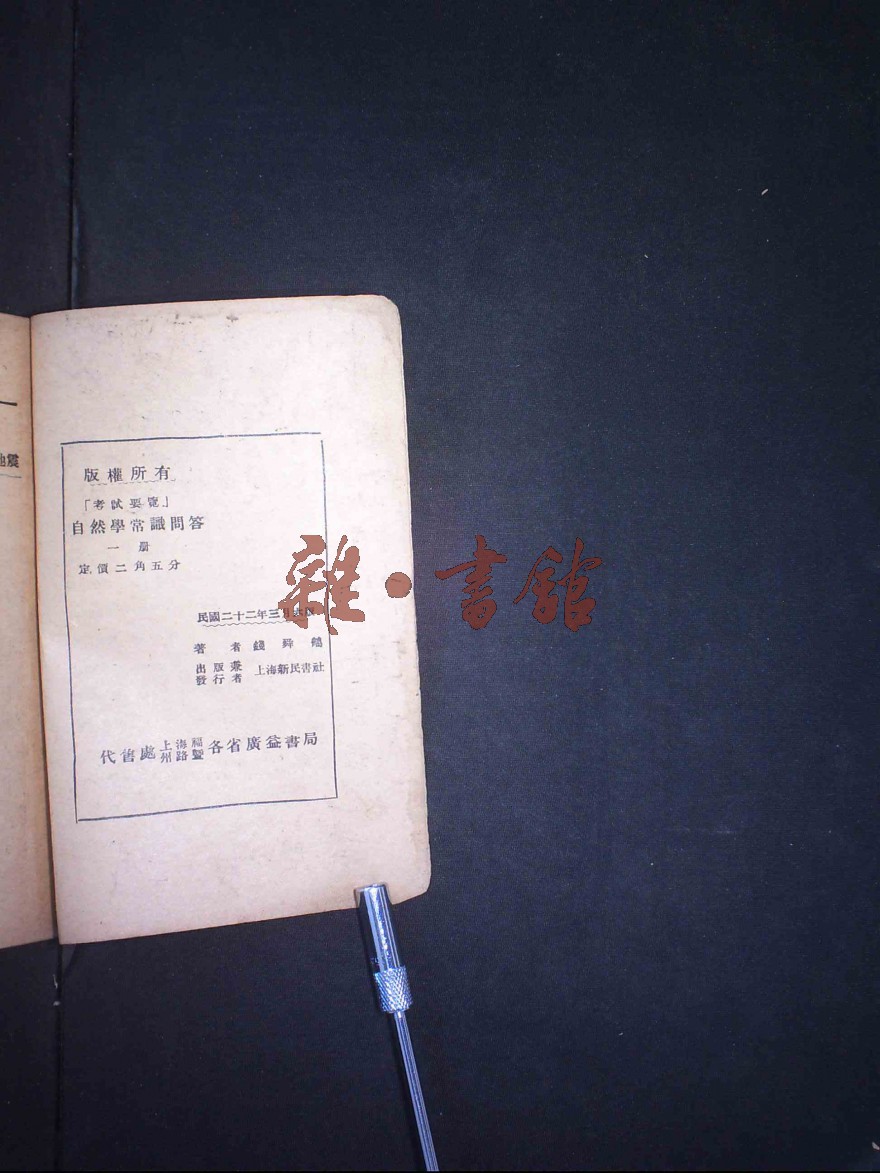 地震
版權所有
「考試要覽」
自然學常識問答
一册
定價二角五分
民國二十二年三月
著者 錢舜
出版兼發行者 上海新民書社
代售處 上海福州路暨各省廣益書局
雜·書館